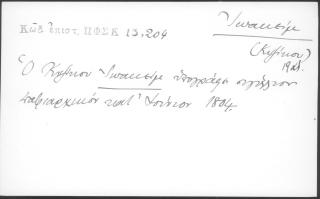 Κῶδ ἐπιστ. ΠΦΣΚ 13,204
Ἰωακεὶμ
(Κυζίκου)
Ὁ Κυζίκου Ἰωακεὶμ ὑπογράφει σιγίλλιον
πατριαρχικὸν κατ' Ἰούνιον 1804.